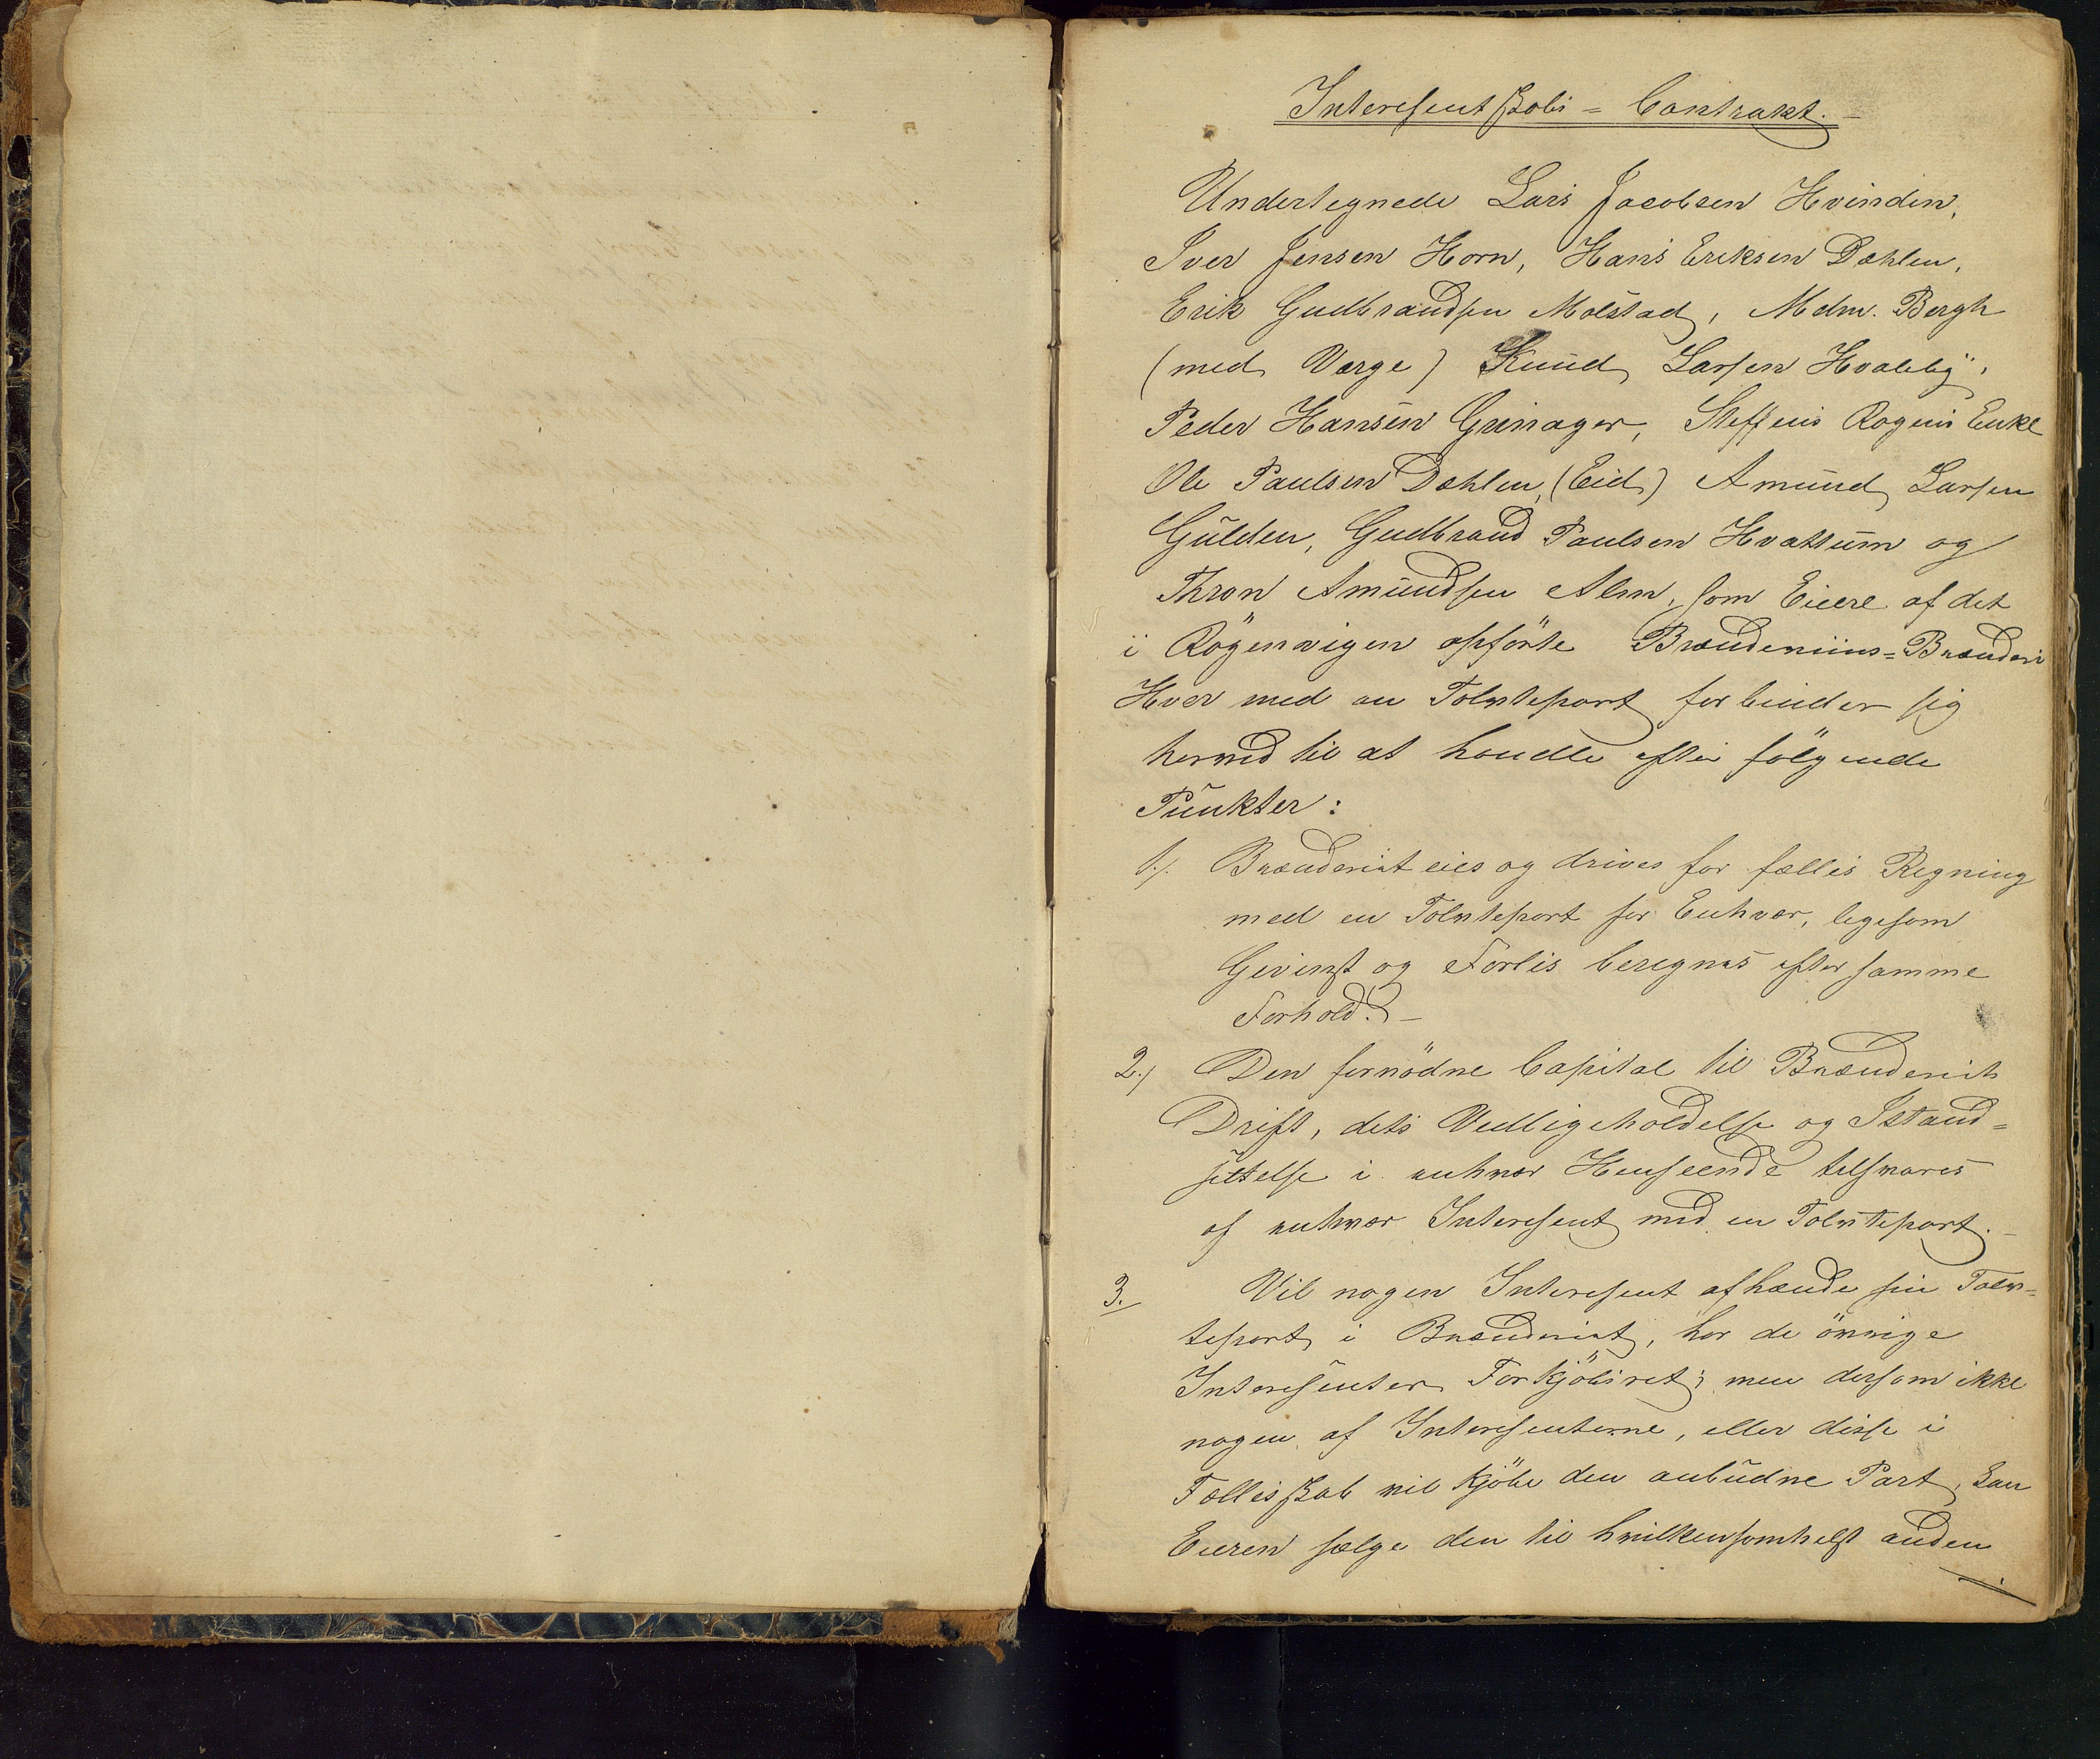 Interesentskabs-Contrakt.
Undertegnede Lars Jacobsen Hvinden,
Iver Jensen Horn, Hans Eriksen Dæhlen,
Erik Gudbrandsen Molstad, Mdm. Bergh
(med Værge) Knud Larsen Hvaleby,
Peder Hansen Grinager, Steffens Rognis Enke
Ole Paulsen Dæhlen, (Eid) Amund Larsen
Gulden, Gudbrand Paulsen Hvattum og
Thron Amundsen Alm, som Eiere af det
i Røgenvigen opførte Brændeviins-Brænderi
Hver med en Tolvtepart forbinder sig
herved til at handle efter følgende
Punkter:
1). Brænderiet eies og drives for fælles Regning
med en Tolvtepart for Enhver, ligesom
Gevinst og Forlis beregnes efter samme
Forhold. –
2.) Den fornødne Capital til Brænderiets
Drift, dets Vedligeholdelse og Istand-
settelse i enhver Henseende tilsvares
af enhver Interesent med en Tolvtepart. –
3. Vil nogen Interesent afhænde sin Tolv-
tepart i Brænderiet, har de øvrige
Interesenter Forkjøbsret; men dersom ikke
nogen af Interesenterne, eller disse i
Fællesskab vil kjøbe den anbudne Part, kan
Eieren sælge den til hvilkensomhelst anden